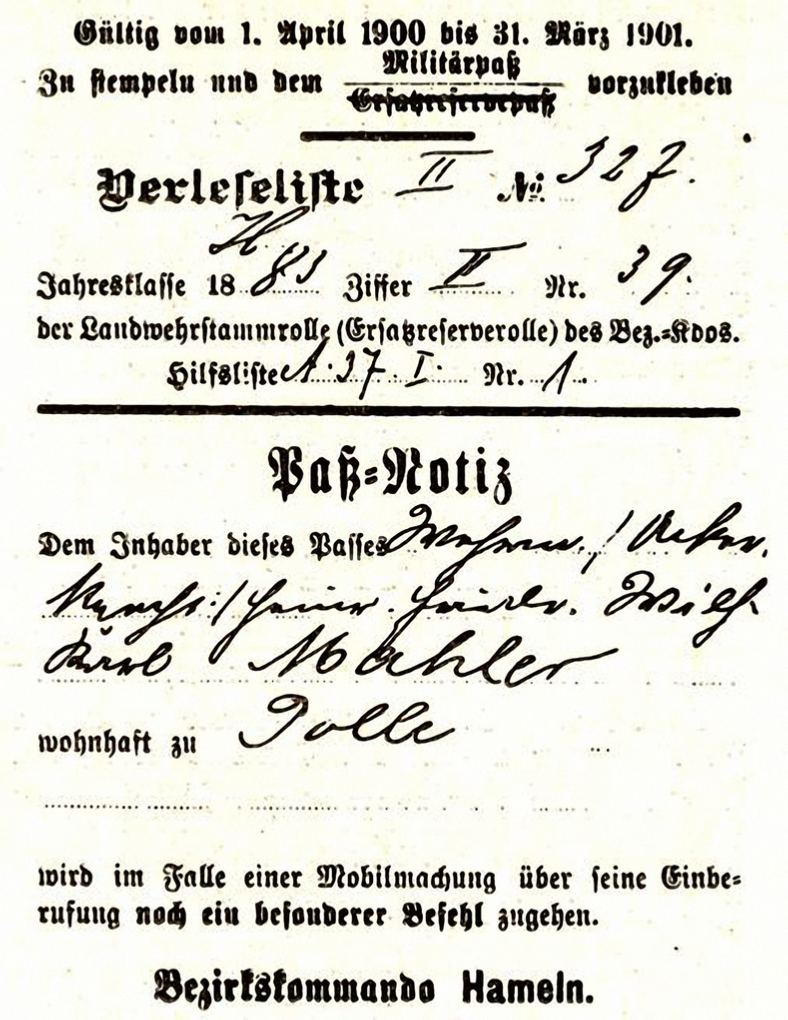 Gültig vom 1. April 1900 bis 31. März 1901.
Militärpaß
Zu stempeln und dem vorzukleben
Ersatzreservepaß
Verleseliste II № 327.
Jahresklasse 1883 Ziffer II Nr. 39.
der Landwehrstammrolle (Ersatzreserverolle) des Bez.-Kdos.
Hilfsliste A. 37. I. Nr. 1.
Paß-Notiz
Dem Inhaber dieses Passes Wehrm. / Acker-
knecht / Heinr. Friedr. Wilh.
Karl Mahler
wohnhaft zu Polle
wird im Falle einer Mobilmachung über seine Einbe-
rufung noch ein besonderer Befehl zugehen.
Bezirkskommando Hameln.